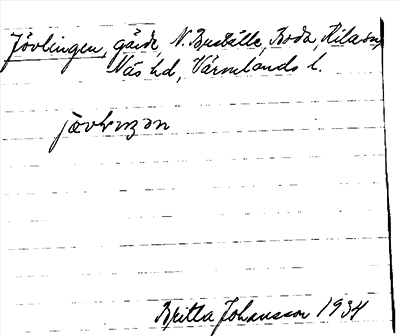 Jövlingen, gärde, N. Buskålle, Boda, Kila sn,
Näs hd, Värmlands l.
jøvlıŋən
Britta Johansson 1934